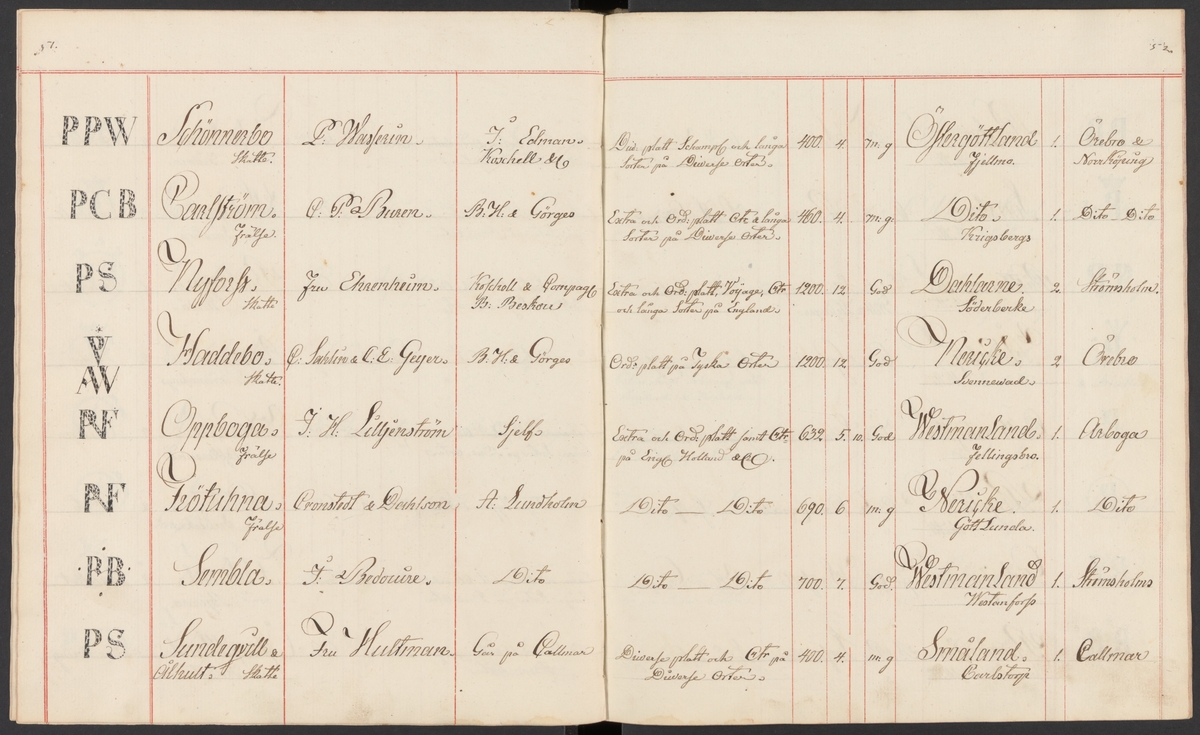 51.
52.
PPW Schönnerbo P. Wasserun. J: Edman. Ord: platt Schampl och långa 400. 4. m: g Östergöttland 1. Örebro &
Skatte. Koschell & C Sorter på Diverse Orter. Fjellmo. Norrköping
PCB Carlström. C: P: Buren. B: H: & Görges Extra och Ord: platt Ctr & långa 460. 4. m: g: Dito. 1. Dito Dito
Frälse. Sorter på Diverse Orter. Krigsbergs
PS Nyforss. Fru Ehrenheim. Koschell & Compag Extra och Ord: platt, Voyage, Ctr 1200. 12 God Dahlarne. 2. Strömsholm.
Skatte B: Beskou och långa Sorter på England. Söderberke
V
AV Haddebo. C: Sahlin & C: E: Geyer. B: H: & Görges Ord: platt på Tyska Orter 1200. 12. God Nericke. 2 Örebro
Skatte. Svennewad.
Oppboga. J: H: Lilljenström Sjelf. Extra och Ord: platt samt Ctr 632. 5. 10. God Westmanland. 1. Arboga
Frälse på Engl Holland & C. Fellingsbro.
Frötuhna. Cronstedt & Dahlson A: Lundholm Dito Dito 690. 6 m: g Nericke. 1. Dito
Frälse Göttlunda.
PB Sembla. J: Bedoüre. Dito Dito Dito 700. 7. God. Westmanland 1. Strömsholms
Westanforss
PS Sundegvill & Fru Hultman. Går på Callmar Diverse platt och Ctr på 400. 4. m: g Småland. 1. Callmar
Ålhult. Skatte Diverse Orter. Carlstorp